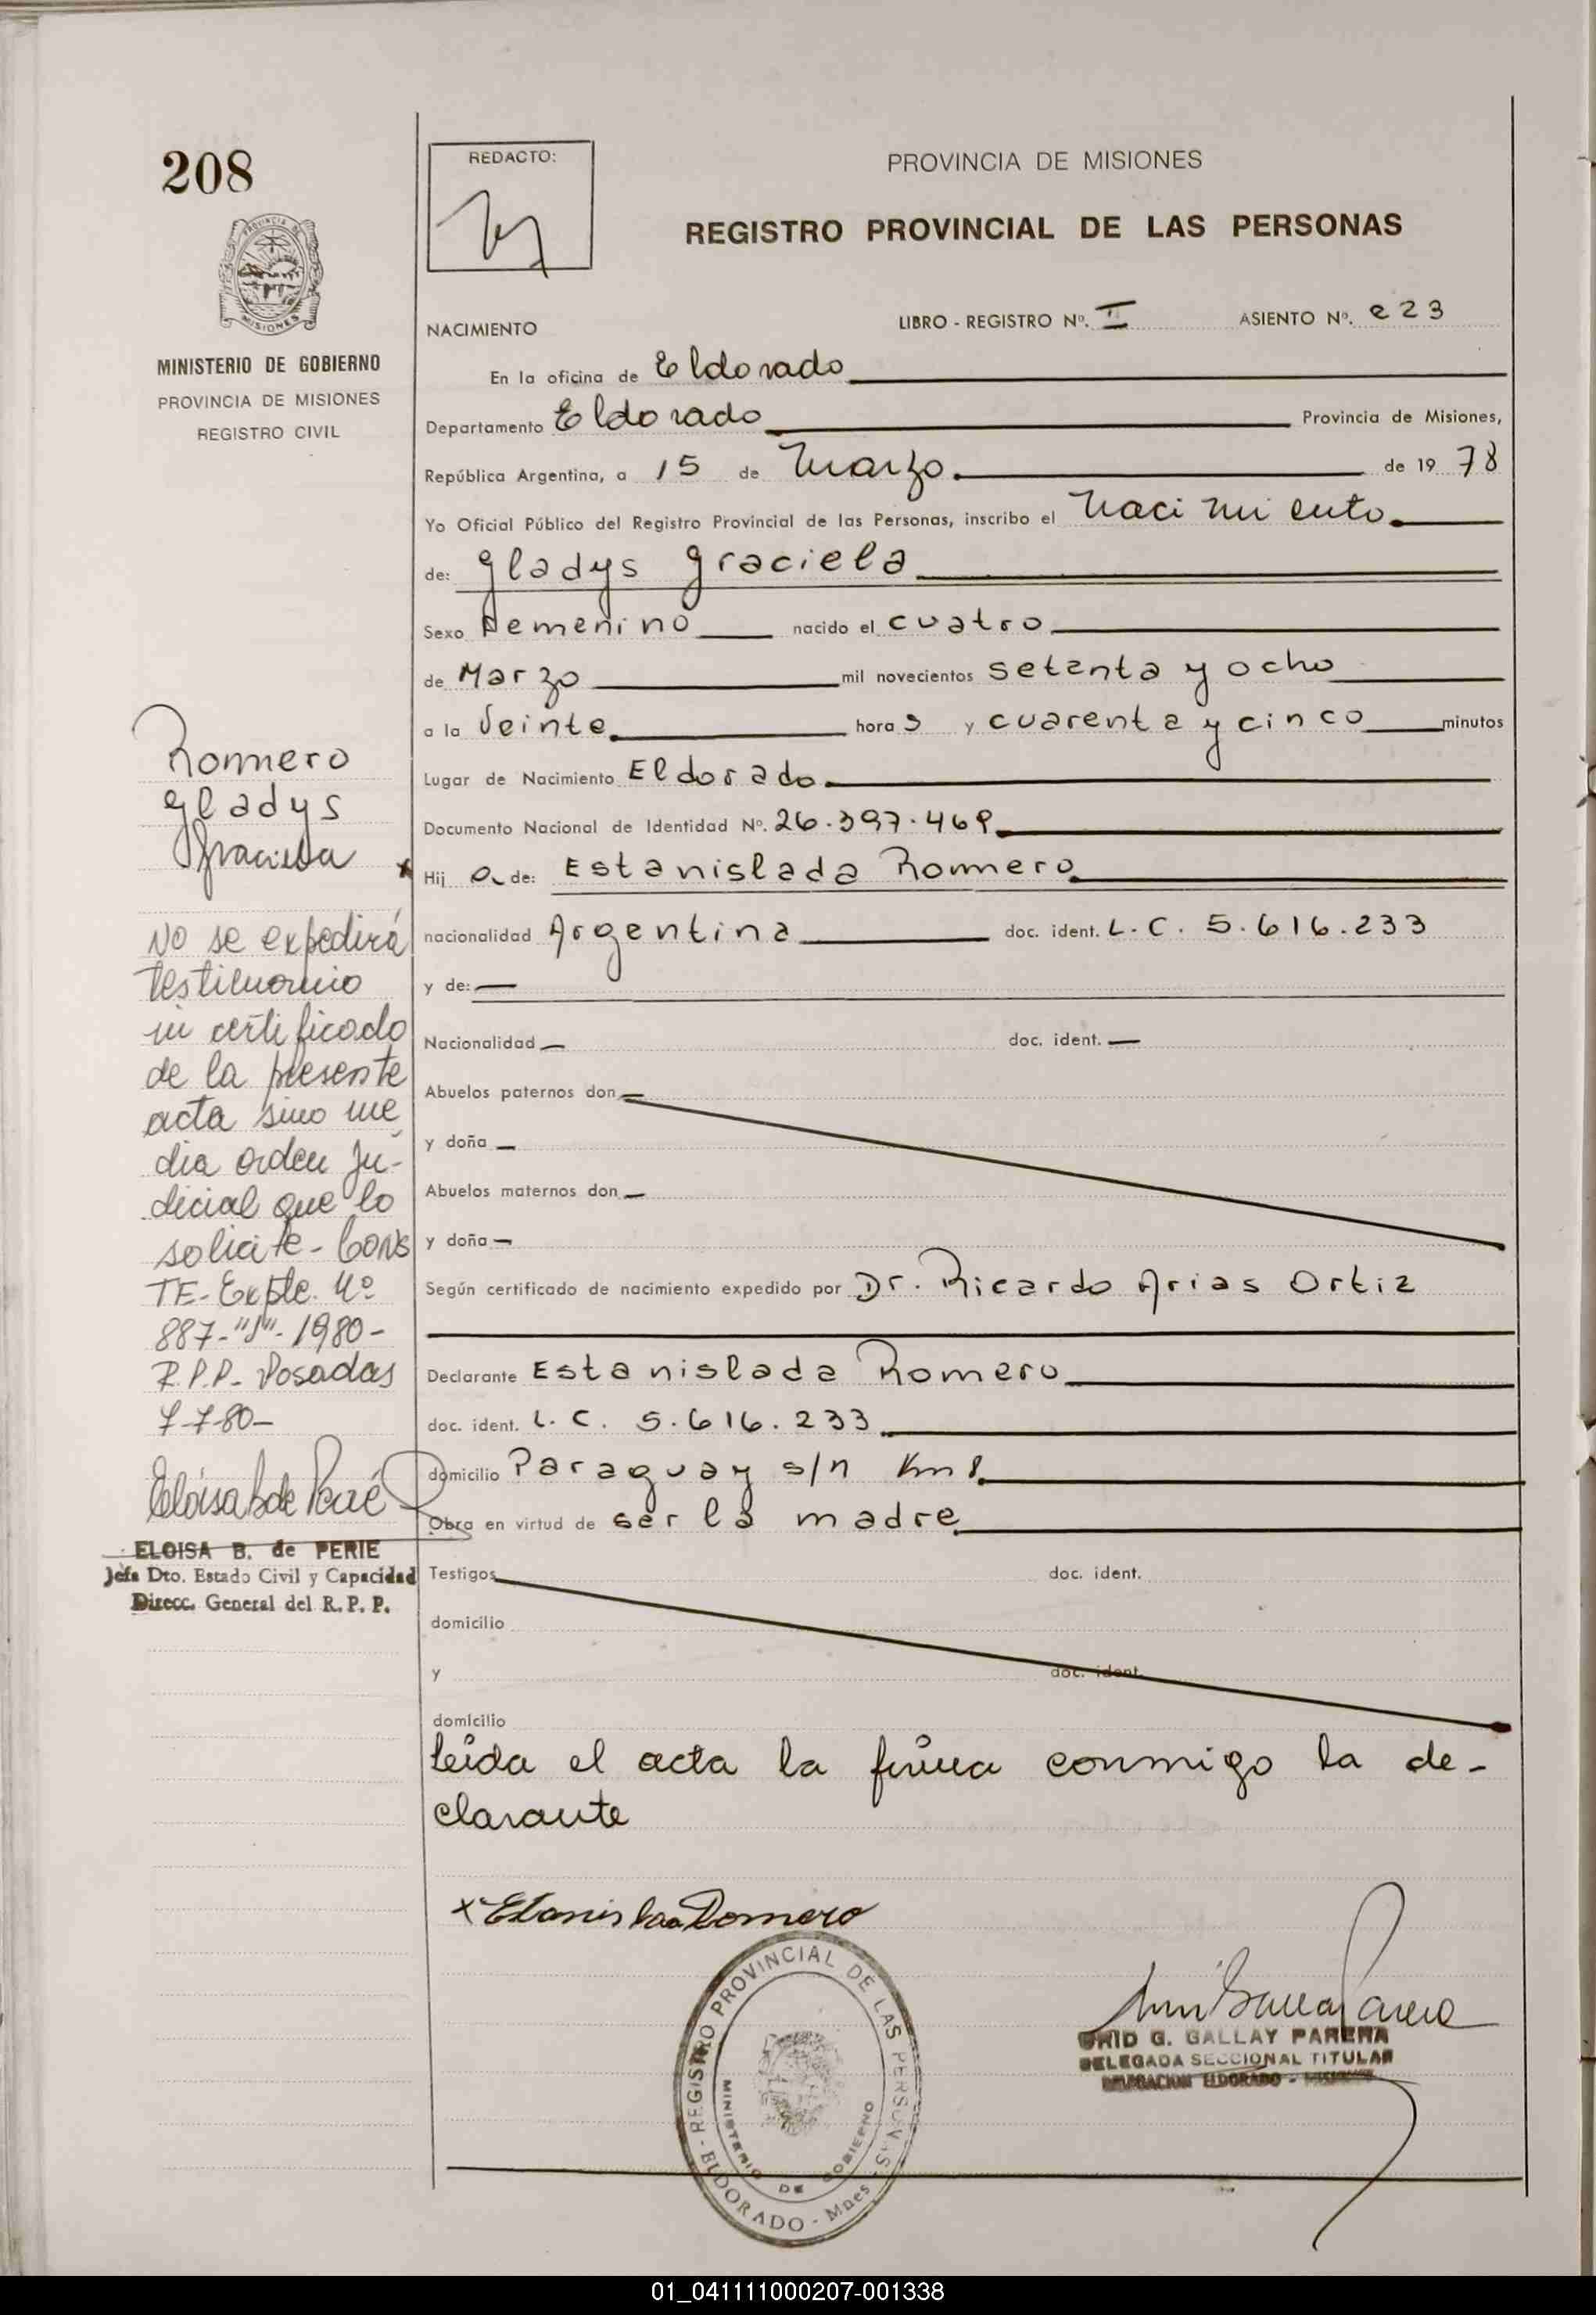 208
PROVINCIA DE
MISIONES
MINISTERIO DE GOBIERNO
PROVINCIA DE MISIONES
REGISTRO CIVIL
REDACTO:
PROVINCIA DE MISIONES
REGISTRO PROVINCIAL DE LAS PERSONAS
NACIMIENTO LIBRO - REGISTRO Nº. II ASIENTO Nº. 223
En la oficina de Eldorado
Departamento Eldorado Provincia de Misiones,
República Argentina, a 15 de Marzo de 19 78
Yo Oficial Público del Registro Provincial de las Personas, inscribo el Nacimiento
de: Gladys Graciela
Sexo Femenino nacido el cuatro
de Marzo mil novecientos setenta y ocho
a la Veinte hora s y cuarenta y cinco minutos
Lugar de Nacimiento Eldorado
Documento Nacional de Identidad Nº. 26.397.469
Hij a de: Estanislada Romero
nacionalidad Argentina doc. ident. L.C. 5.616.233
y de: —
Nacionalidad — doc. ident. —
Abuelos paternos don —
y doña —
Abuelos maternos don —
y doña —
Según certificado de nacimiento expedido por Dr. Ricardo Arias Ortiz
Declarante Estanislada Romero
doc. ident. L.C. 5.616.233
domicilio Paraguay s/n Km 8
Obra en virtud de ser la madre
Testigos doc. ident.
domicilio
y doc. ident.
domicilio
leída el acta la firma conmigo la de-
clarante
Romero
Gladys
Graciela
No se expedirá
testimonio
ni certificado
de la presente
acta sino me
dia orden ju-
dicial que lo
solicite - CONS
TE - Expte. Nº
887-"J"-1980-
R.P.P. Posadas
7-7-80-
Eloisa B de Perié
ELOISA B. de PERIE
Jefa Dto. Estado Civil y Capacidad
Direcc. General del R. P. P.
x Estanislaa Romero
REGISTRO PROVINCIAL DE LAS PERSONAS
MINISTERIO DE GOBIERNO
- ELDORADO - Mnes -
G. GALLAY PARERA
DELEGADA SECCIONAL TITULAR
DELEGACION ELDORADO - MISIONES
01_041111000207-001338